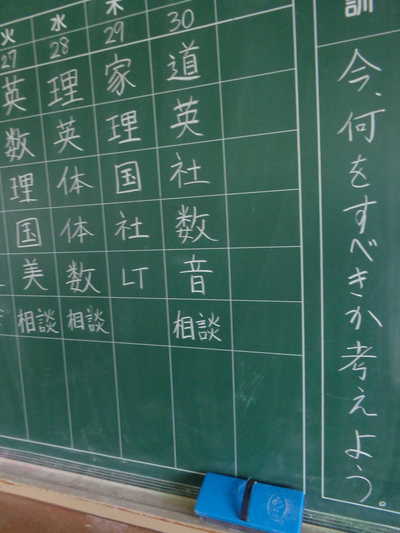 火 水 木
27 28 29 30
英 理 家 道
数 英 理 英
理 体 国 社
国 体 社 数
美 数 LT 音
相談 相談 相談
訓
今、何をすべきか考えよう。